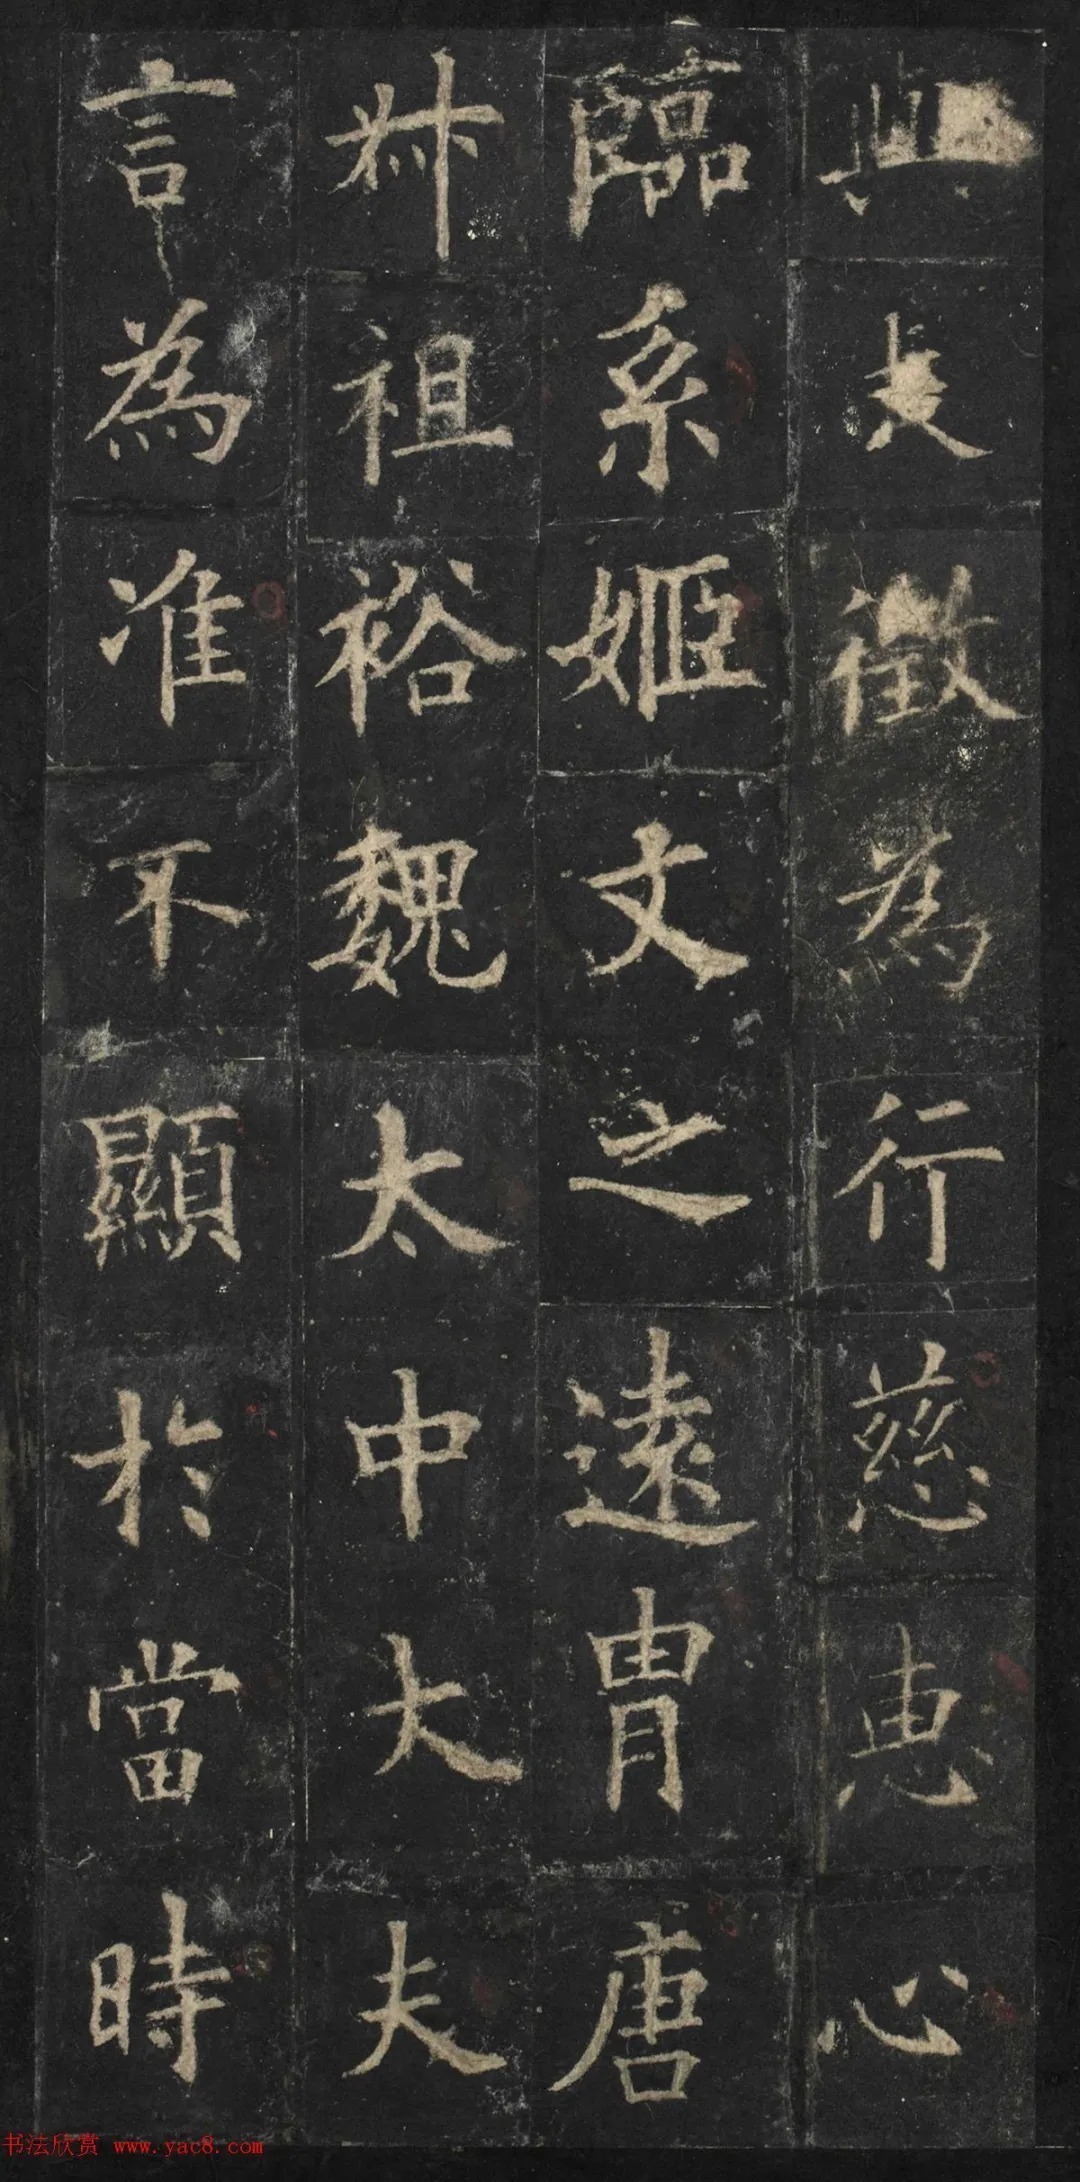 徵為行慈惠心
臨系姬文之遠胄唐
叔祖裕魏太中大夫
言為准不顯於當時
书法欣赏 www.yac8.com